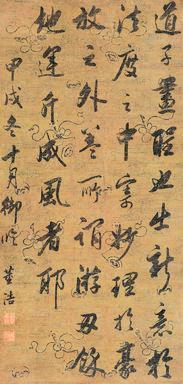 道子畫聖也出新意於
法度之中寄妙理於豪
放之外蓋所謂游刃餘
地運斤成風者耶
甲戌冬十月御臨
董浩